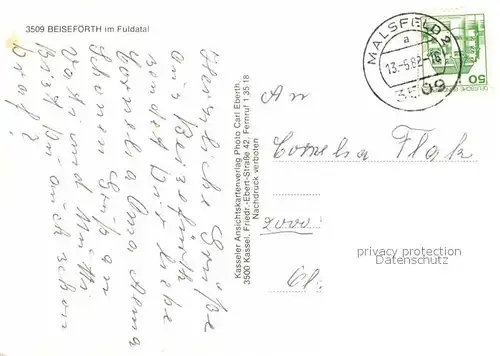 3509 BEISEFÖRTH im Fuldatal
Herzliche Grüße
aus Beiseförth
sendet Dir liebe
Cornelia Oma Anna
Schönen Gruß an
Vati und Mutti
Bist Du auch schon
brav?
Kasseler Ansichtskartenverlag Photo Carl Eberth
3500 Kassel, Friedr.-Ebert-Straße 42, Fernruf 1 35 18
Nachdruck verboten
MALSFELD 2
a
13.-5.82-16
3509
50
An
Cornelia Flak
2000
privacy protection
Datenschutz